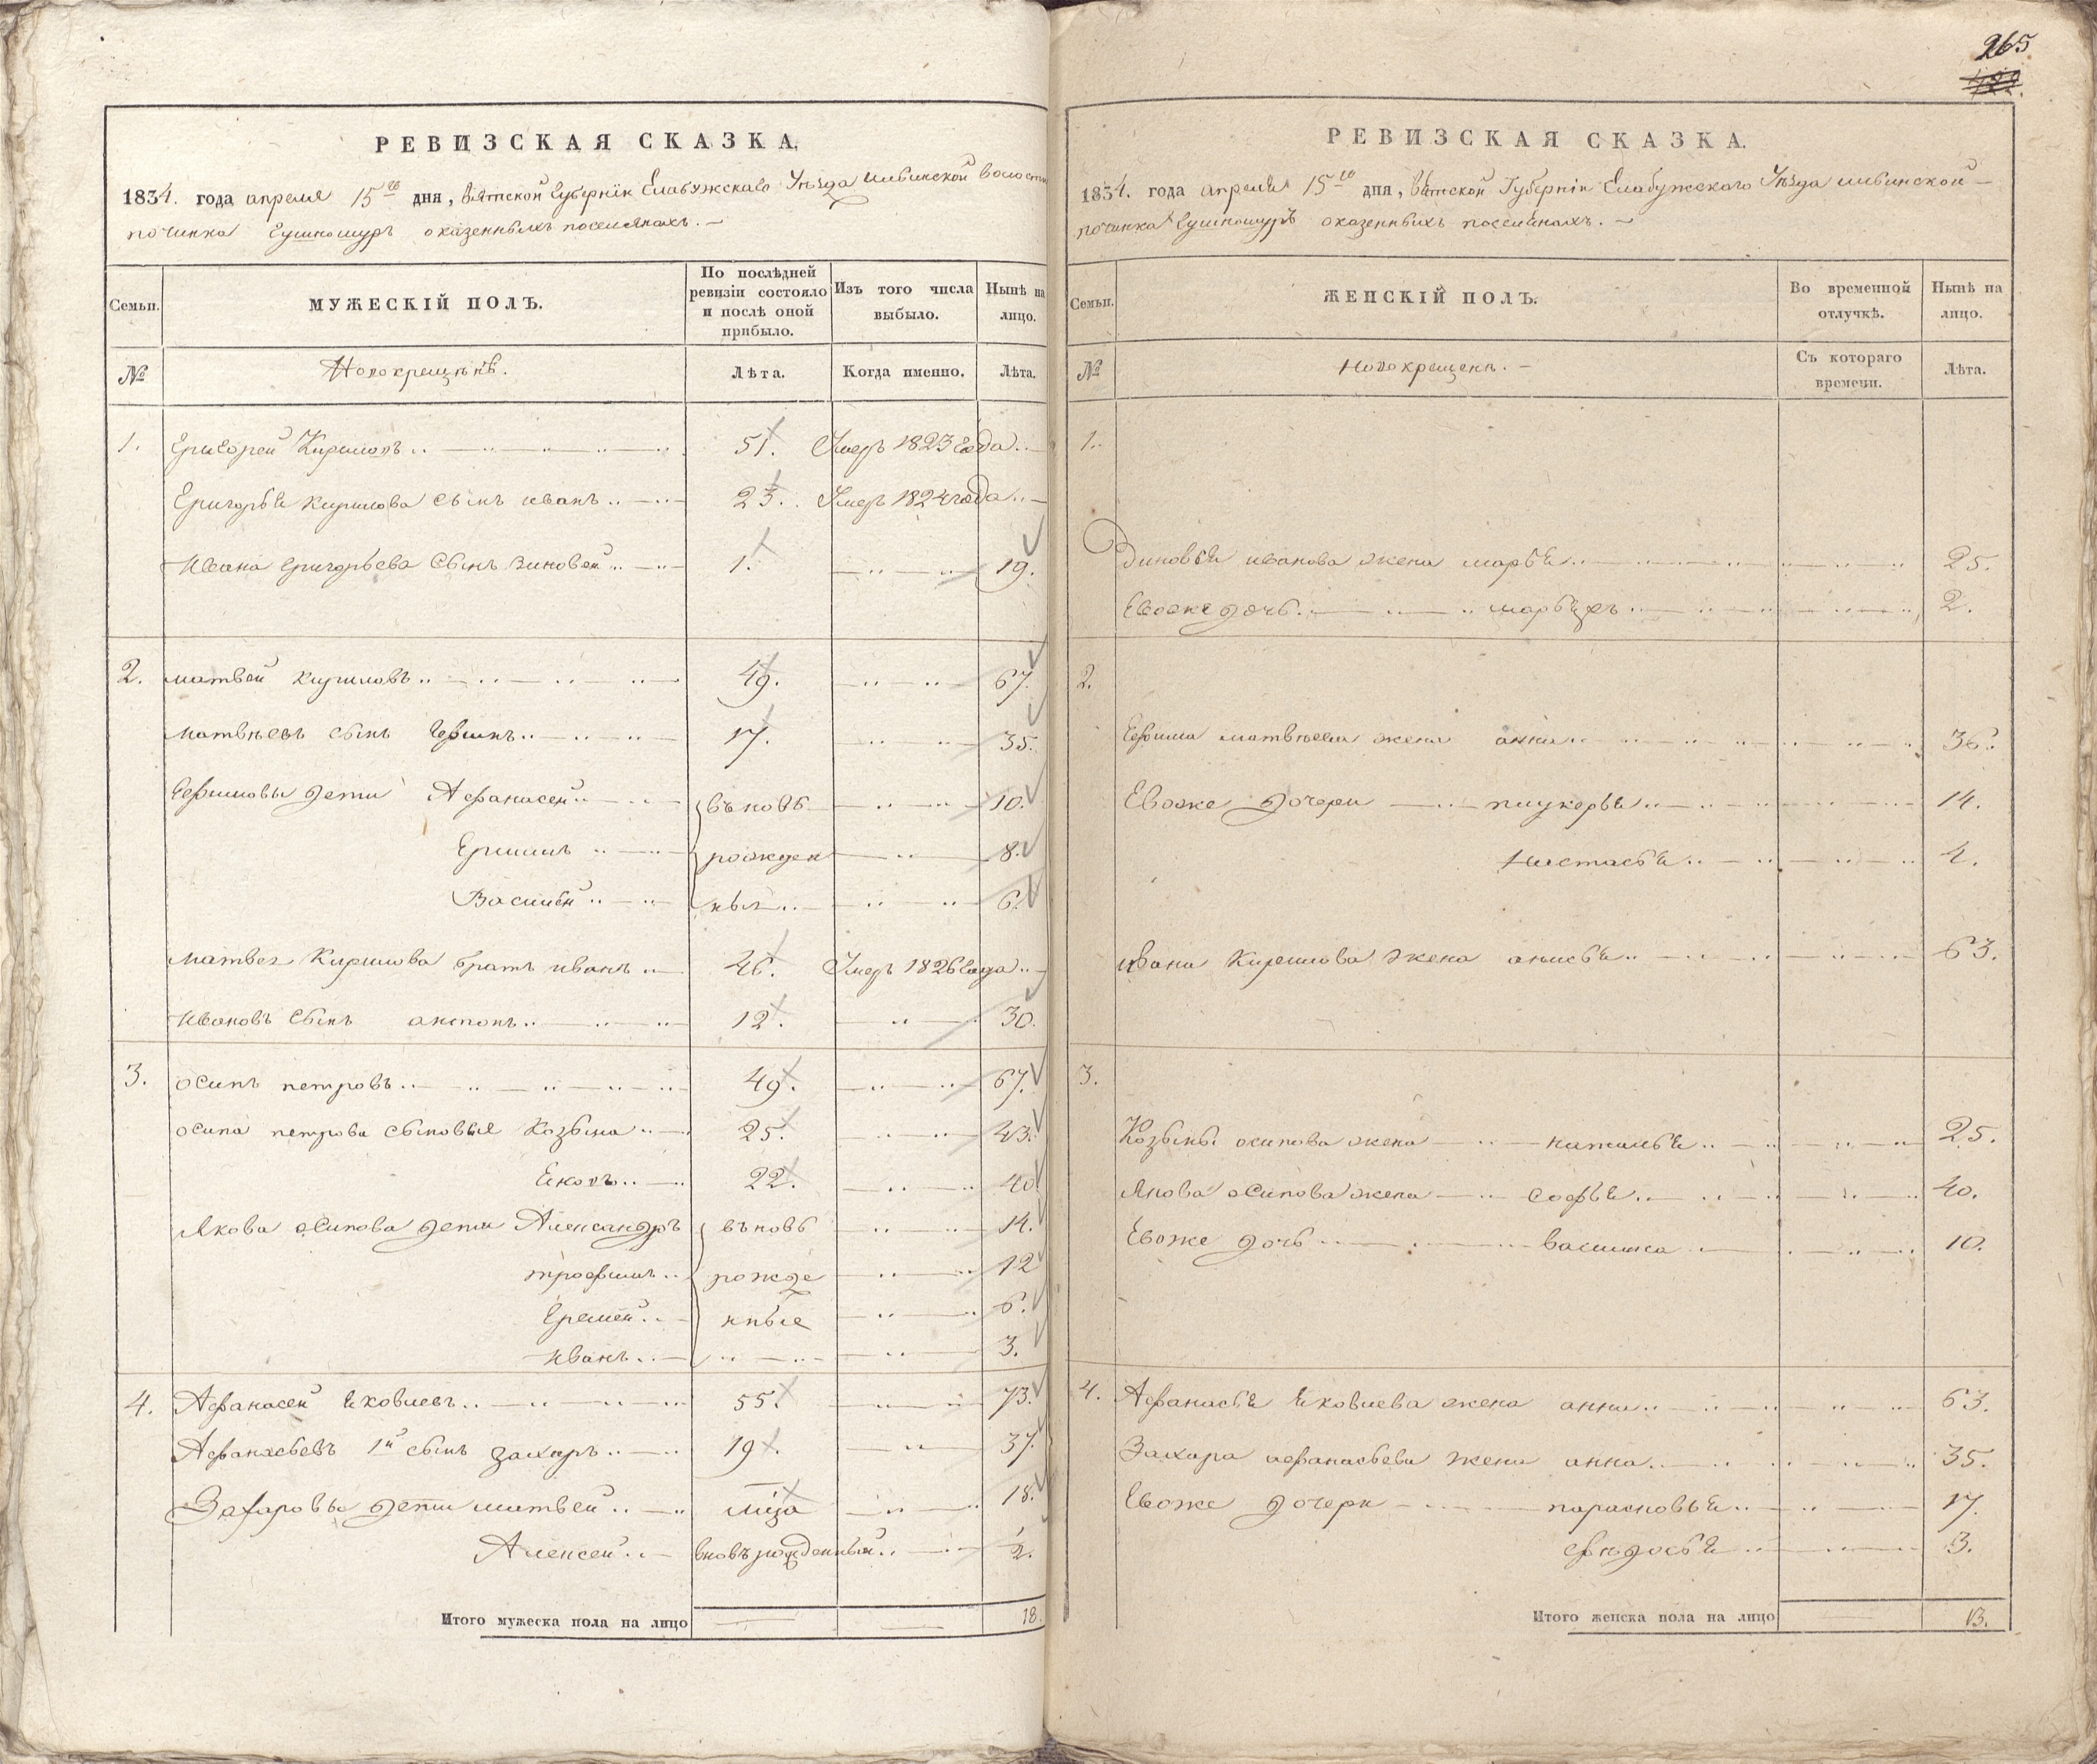 265
РЕВИЗСКАЯ СКАЗКА.
1834. года апреля 15го дня, Вятской Губернiи Елабужскаго Уѣзда волости
починка оказенныхъ поселянахъ.
Семьи.
МУЖЕСКIЙ ПОЛЪ.
По послѣдней ревизiи состояло и послѣ оной прибыло.
Изъ того числа выбыло.
Нынѣ на лицо.
№
Новокрещенъ.
Лѣта.
Когда именно.
Лѣта.
1. Григорей Кириловъ 51. Умеръ 1823 года
Григорья Кирилова сынъ иванъ 23. Умеръ 1824 года
Ивана григорьева сынъ Зиновей 1. 19.
2. матвей Кириловъ 49. 67.
матвѣевъ сынъ Ефимъ 17. 35.
Ефимовы дети Афанасей въновь 10.
рожден 8.
Василей ныя 6.
матвея Кирилова братъ иванъ 46. Умеръ 1826 года
Ивановъ сынъ антонъ 12. 30.
3. осипъ петровъ 49. 67.
осипа петрова сыновья Козьма 25. 43.
Яковъ 22. 40.
Якова осипова дети Александръ въновь 14.
трофимъ рожде 12
Еремей нные 6.
Иванъ 3.
4. Афанасей Яковлевъ 55. 73.
Афанасьевъ 1й сынъ захаръ 19. 37.
Захаровы дети матвей 18.
Алексей вновърожденный ½.
Итого мужеска пола на лицо 18.
РЕВИЗСКАЯ СКАЗКА.
1834. года апреля 15го дня, Вятской Губернiи Елабужского Уѣзда
починка оказенныхъ поселянахъ.
Семьи.
ЖЕНСКIЙ ПОЛЪ.
Во временной отлучкѣ.
Нынѣ на лицо.
№
новокрещенъ.
Съ котораго времени.
Лѣта.
1.
Зиновья иванова жена марья 25.
Евоже дочь 2.
2.
Ефима матвѣева жена анна 36.
Евоже дочери 14.
Настасья 4.
ивана Кирилова жена анисья 63.
3.
Козьмы осипова жена наталья 25.
Якова осипова жена софья 40.
Евоже дочь василиса 10.
4. Афанасья Яковлева жена анна 63.
Захара афанасьева жена анна 35.
Евоже дочери парасковья 17.
федосья 3.
Итого женска пола на лицо 13.